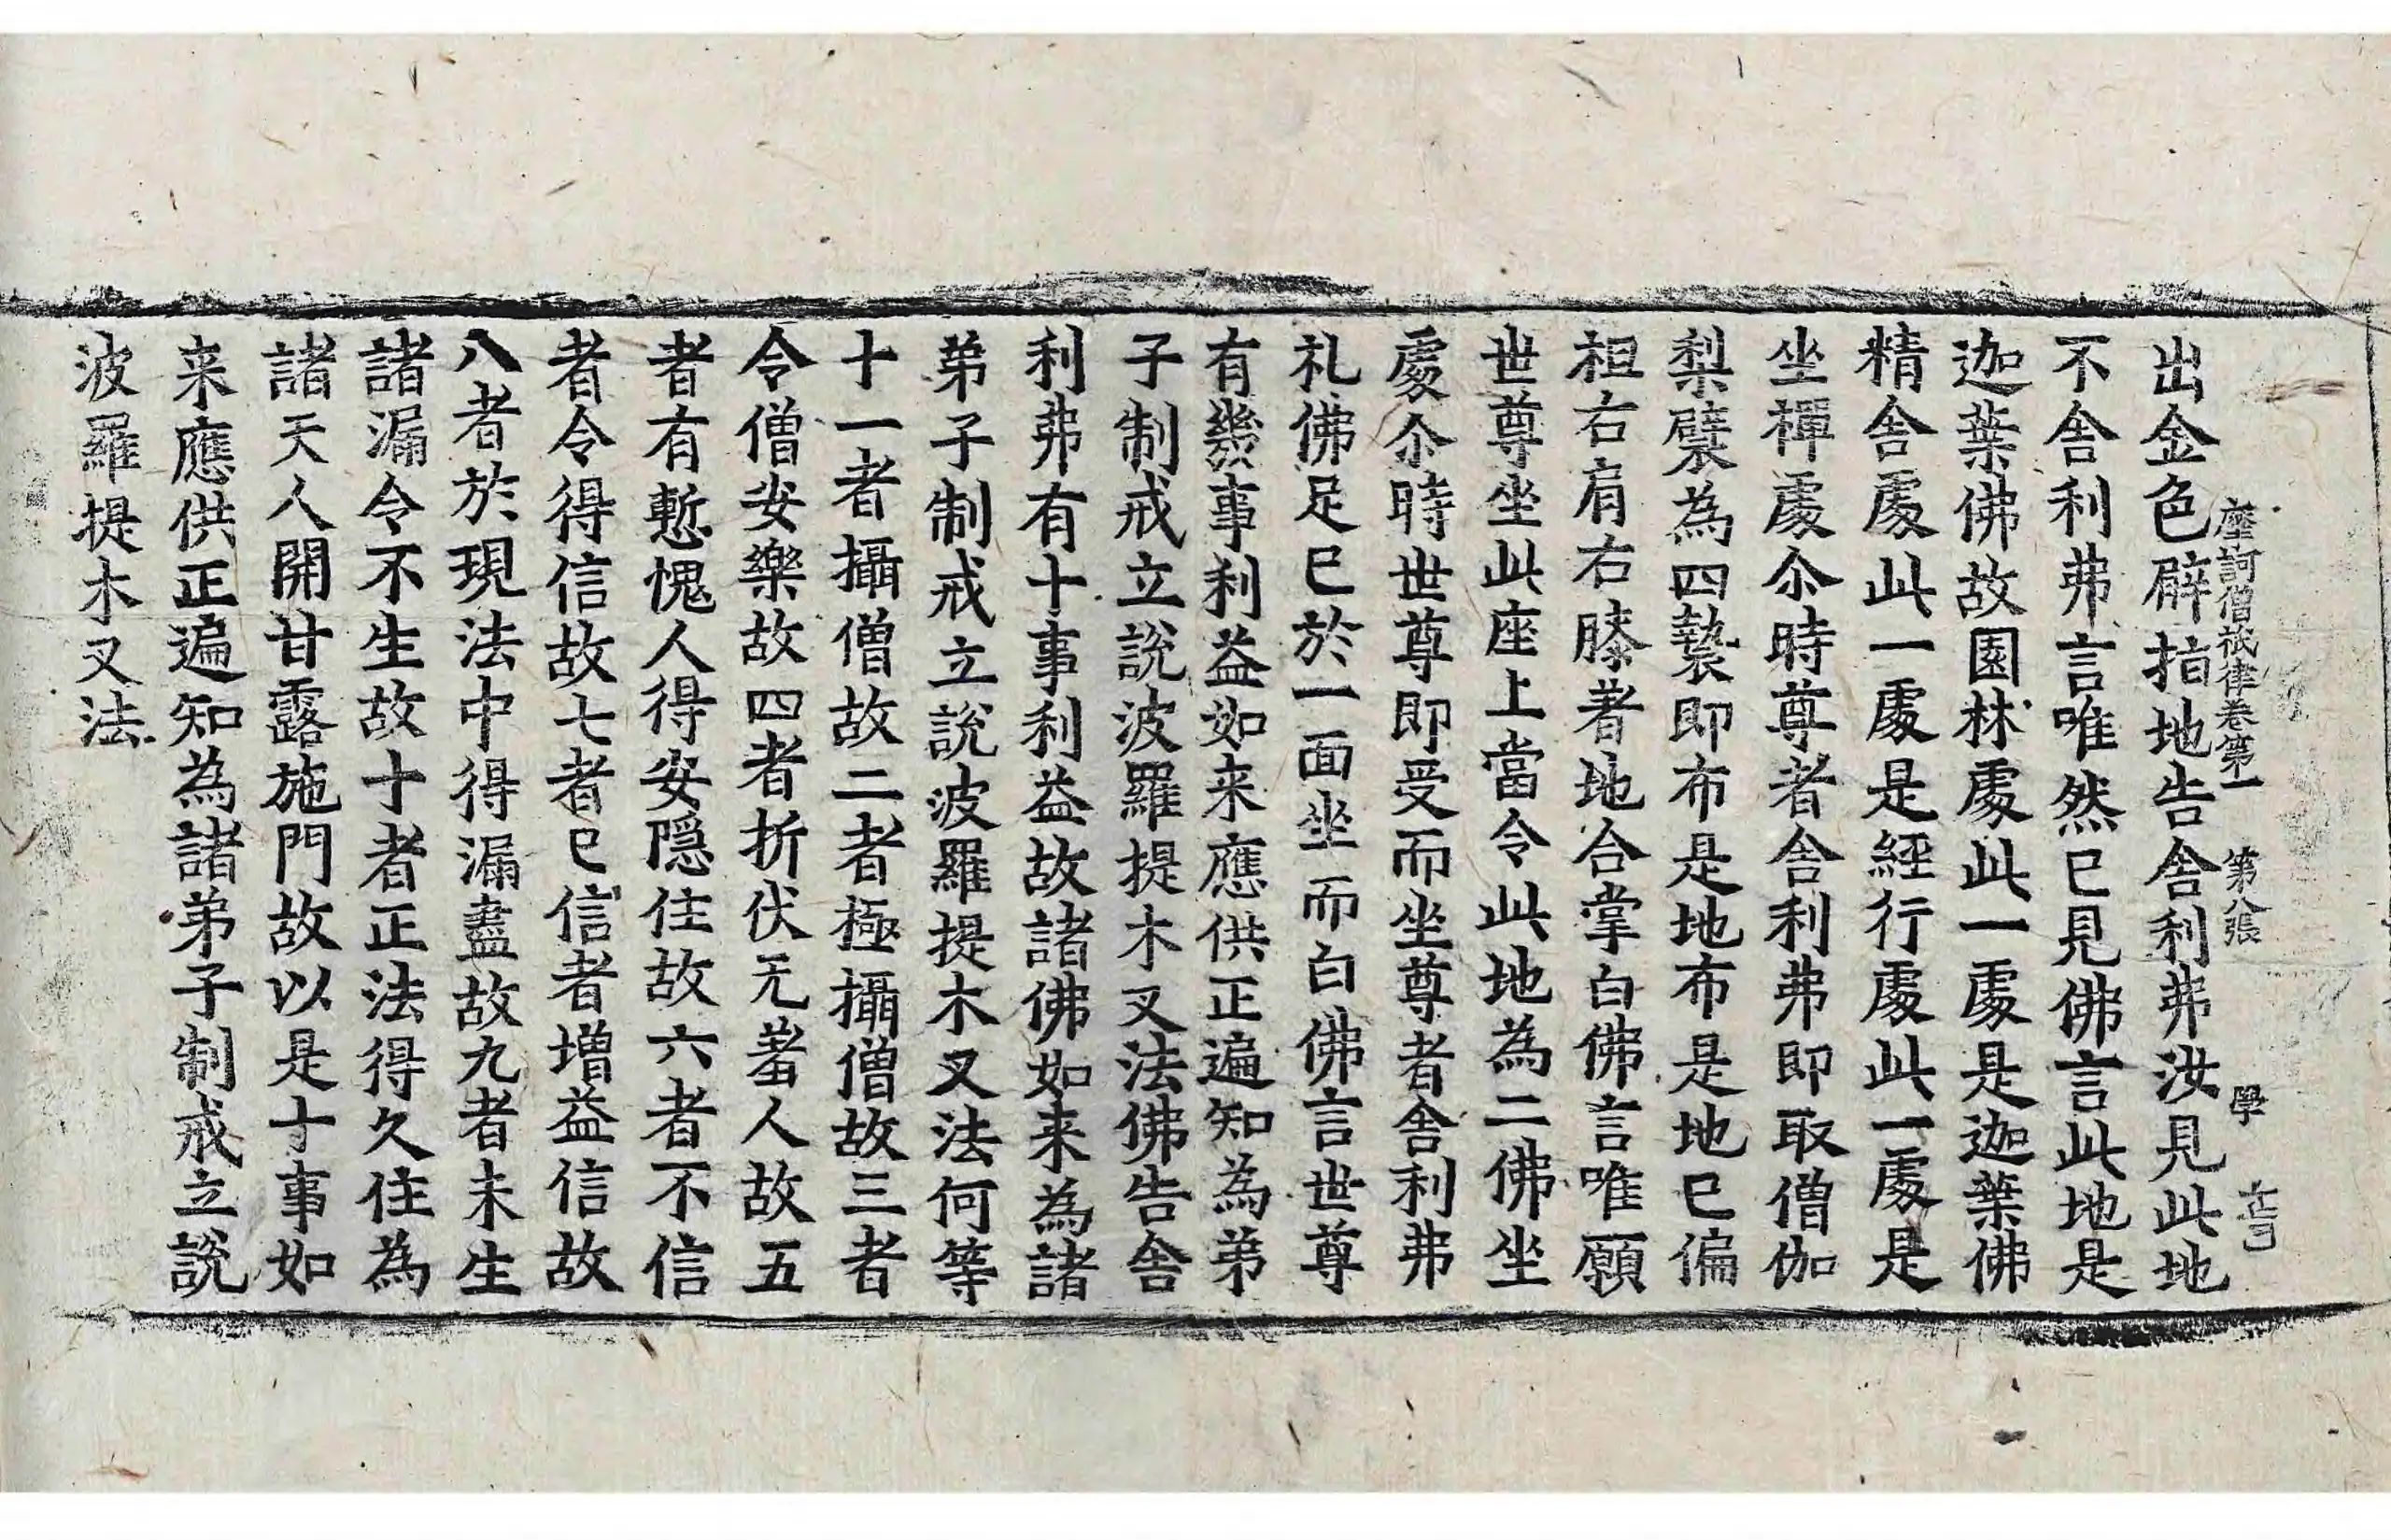 摩訶僧祇律卷第一 第八張 學
出金色臂指地告舍利弗汝見此地
不舍利弗言唯然已見佛言此地是
迦葉佛故園林處此一處是迦葉佛
精舍處此一處是經行處此一處是
坐禪處尒時尊者舍利弗即取僧伽
梨襞為四褺即布是地布是地已偏
袒右肩右膝著地合掌白佛言唯願
世尊坐此座上當令此地為二佛坐
處尒時世尊即受而坐尊者舍利弗
礼佛足已於一面坐而白佛言世尊
有幾事利益如来應供正遍知為弟
子制戒立說波羅提木叉法佛告舍
利弗有十事利益故諸佛如来為諸
弟子制戒立說波羅提木叉法何等
十一者攝僧故二者極攝僧故三者
令僧安樂故四者折伏无羞人故五
者有慙愧人得安隱住故六者不信
者令得信故七者已信者增益信故
八者於現法中得漏盡故九者未生
諸漏令不生故十者正法得久住為
諸天人開甘露施門故以是十事如
来應供正遍知為諸弟子制戒立說
波羅提木叉法